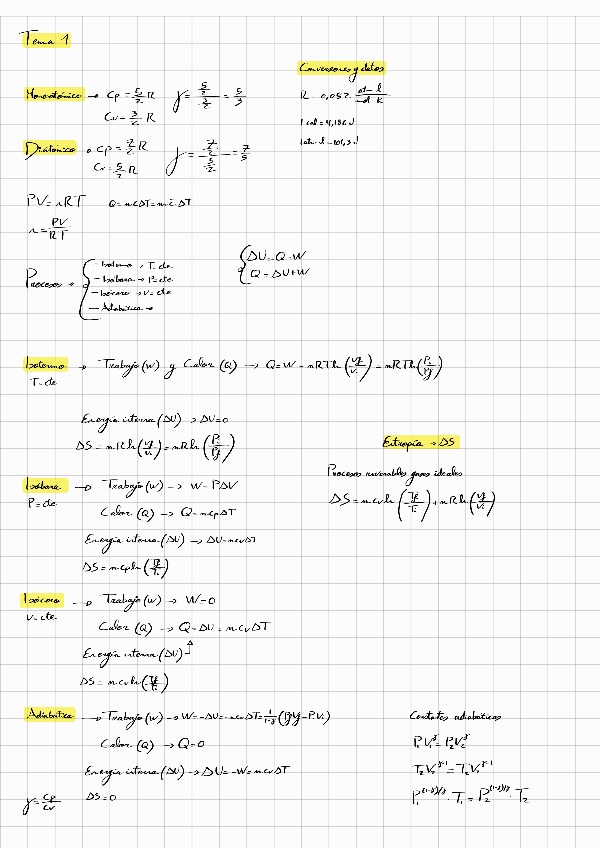 Tema 1
Conversiones y datos
Monoatómico → Cp = 5/2 R   γ = (5/2)/(3/2) = 5/3
Cv = 3/2 R
R = 0,082 atm·l/mol·K
1 cal = 4,186 J
1 atm·l = 101,3 J
Diatómico → Cp = 7/2 R   γ = (7/2)/(5/2) = 7/5
Cv = 5/2 R
PV = nRT   Q = m·c·ΔT = n·c·ΔT
n = PV/RT
Procesos →
- Isotermo → T = cte.
- Isobara → P = cte.
- Isócoro → V = cte.
- Adiabática →
ΔU = Q - W
Q = ΔU + W
Isotermo → Trabajo (W) y Calor (Q) → Q = W = nRT ln (Vf/Vi) = nRT ln (Pi/Pf)
T = cte
Energía interna (ΔU) → ΔU = 0
ΔS = nR ln (Vf/Vi) = nR ln (Pi/Pf)
Entropía → ΔS
Procesos reversibles gases ideales
ΔS = n cv ln (Tf/Ti) + nR ln (Vf/Vi)
Isobara → Trabajo (W) → W = PΔV
P = cte.
Calor (Q) → Q = n cp ΔT
Energía interna (ΔU) → ΔU = n cv ΔT
ΔS = n cp ln (Tf/Ti)
Isócoro → Trabajo (W) → W = 0
V = cte.
Calor (Q) → Q = ΔU = n·cv ΔT
Energía interna (ΔU)
ΔS = n cv ln (Tf/Ti)
Adiabática → Trabajo (W) → W = -ΔU = -n cv ΔT = 1/(1-γ) (PfVf - PiVi)
Calor (Q) → Q = 0
Energía interna (ΔU) → ΔU = -W = n cv ΔT
γ = cp/cv   ΔS = 0
adiabáticas
P₁V₁^γ = P₂V₂^γ
P₁^((1-γ)/γ) · T₁ = P₂^((1-γ)/γ) · T₂